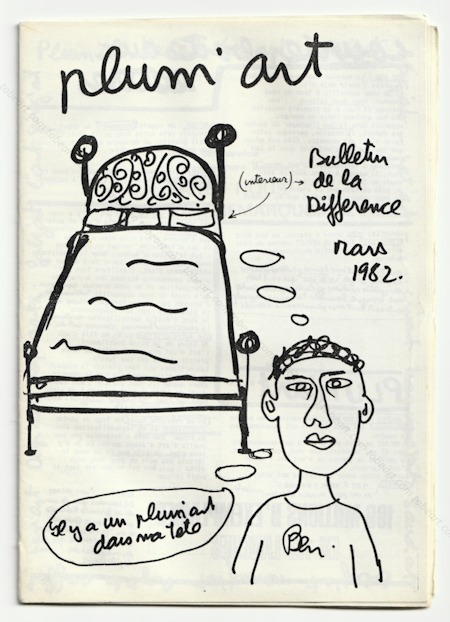 plum'art
(interieur)
Bulletin
de la
Difference
mars
1982.
il y a un plum'art
dans ma tete
Ben.